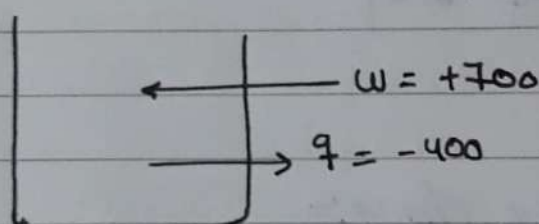 w = +700
q = -400